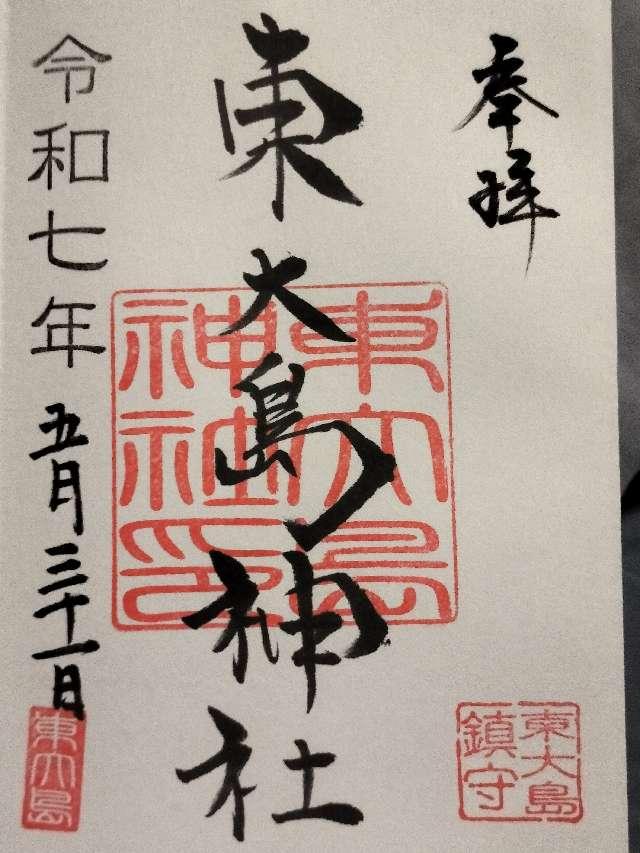 奉拝
東大島神社
東大島神社印
令和七年五月三十一日
東大島鎮守
東大島